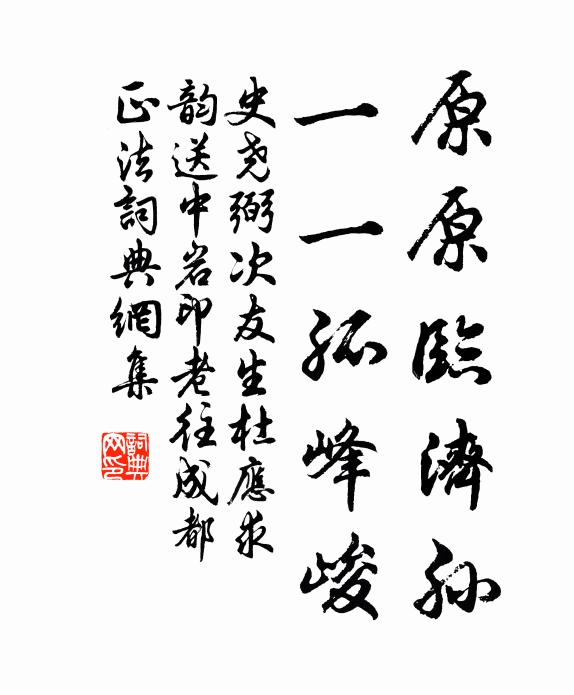 原原臨濟孫
一一孤峰峻
史堯弼次友生杜應求
韵送中岩印老往成都
正法詞典網集
詞典网印